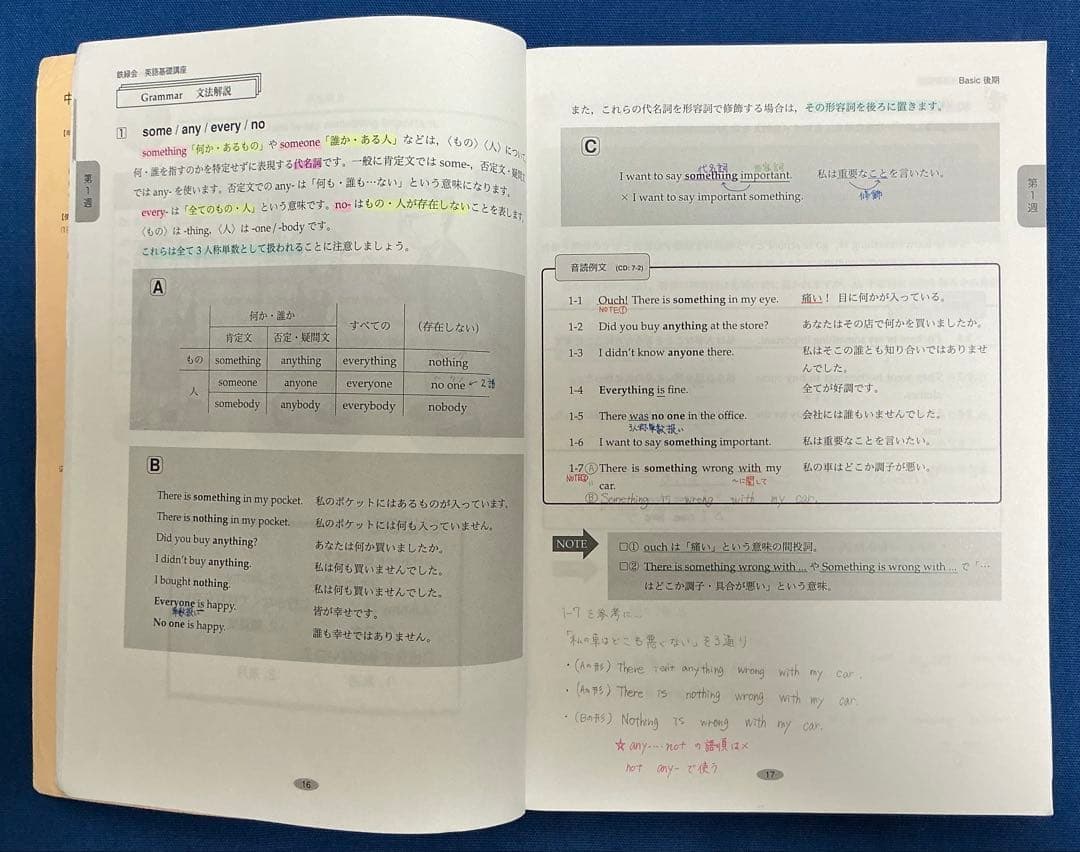 鉄緑会 英語基礎講座
Grammar 文法解説
1 some / any / every / no
something「何か・あるもの」や someone「誰か・ある人」などは,〈もの〉〈人〉につい
何・誰を指すのかを特定せずに表現する代名詞です。一般に肯定文では some-, 否定文・疑問文
では any- を使います。否定文での any- は「何も・誰も…ない」という意味になります。
every- は「全てのもの・人」という意味です。no- はもの・人が存在しないことを表します。
〈もの〉は -thing,〈人〉は -one / -body です。
これらは全て3人称単数として扱われることに注意しましょう。
第1週
A
何か・誰か すべての (存在しない)
肯定文 否定・疑問文
もの something anything everything nothing
人 someone anyone everyone no one ←2語
somebody anybody everybody nobody
B
There is something in my pocket. 私のポケットにはあるものが入っています。
There is nothing in my pocket. 私のポケットには何も入っていません。
Did you buy anything? あなたは何か買いましたか。
I didn't buy anything. 私は何も買いませんでした。
I bought nothing. 私は何も買いませんでした。
Everyone is happy. 皆が幸せです。
単数扱い
No one is happy. 誰も幸せではありません。
16
Basic 後期
また,これらの代名詞を形容詞で修飾する場合は,その形容詞を後ろに置きます。
C
代名詞 形容詞
I want to say something important. 私は重要なことを言いたい。
× I want to say important something. 修飾
第1週
音読例文 (CD: 7-2)
1-1 Ouch! There is something in my eye. 痛い! 目に何かが入っている。
NOTE①
1-2 Did you buy anything at the store? あなたはその店で何かを買いましたか。
1-3 I didn't know anyone there. 私はそこの誰とも知り合いではありませ
んでした。
1-4 Everything is fine. 全てが好調です。
1-5 There was no one in the office. 会社には誰もいませんでした。
3人称単数扱い
1-6 I want to say something important. 私は重要なことを言いたい。
1-7 Ⓐ There is something wrong with my 私の車はどこか調子が悪い。
NOTE② car. 〜に関して
Ⓑ Something is wrong with my car.
NOTE
□① ouch は「痛い」という意味の間投詞。
□② There is something wrong with ... や Something is wrong with ... で「…
はどこか調子・具合が悪い」という意味。
1-7を参考に…
「私の車はどこも悪くない」を3通り
・(Aの形) There isn't anything wrong with my car.
・(Aの形) There is nothing wrong with my car.
・(Bの形) Nothing is wrong with my car.
☆ any……not の語順は×
not any- で使う
17